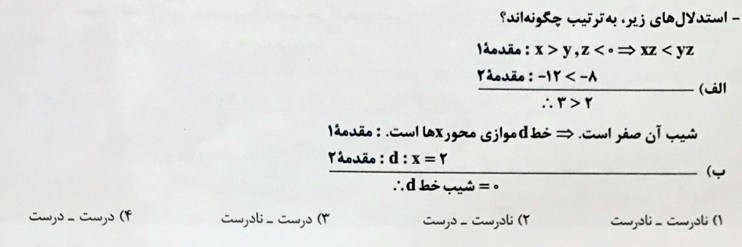 - استدلال‌های زیر، به‌ترتیب چگونه‌اند؟
مقدمهٔ۱ : x > y , z < ۰ ⇒ xz < yz
الف) مقدمهٔ۲ : -۱۲ < -۸
∴ ۳ > ۲
مقدمهٔ۱ : شیب آن صفر است. ⇒ خط d موازی محور xها است.
ب) مقدمهٔ۲ : d : x = ۲
∴ شیب خط d = ۰
۱) نادرست ـ نادرست ۲) نادرست ـ درست ۳) درست ـ نادرست ۴) درست ـ درست